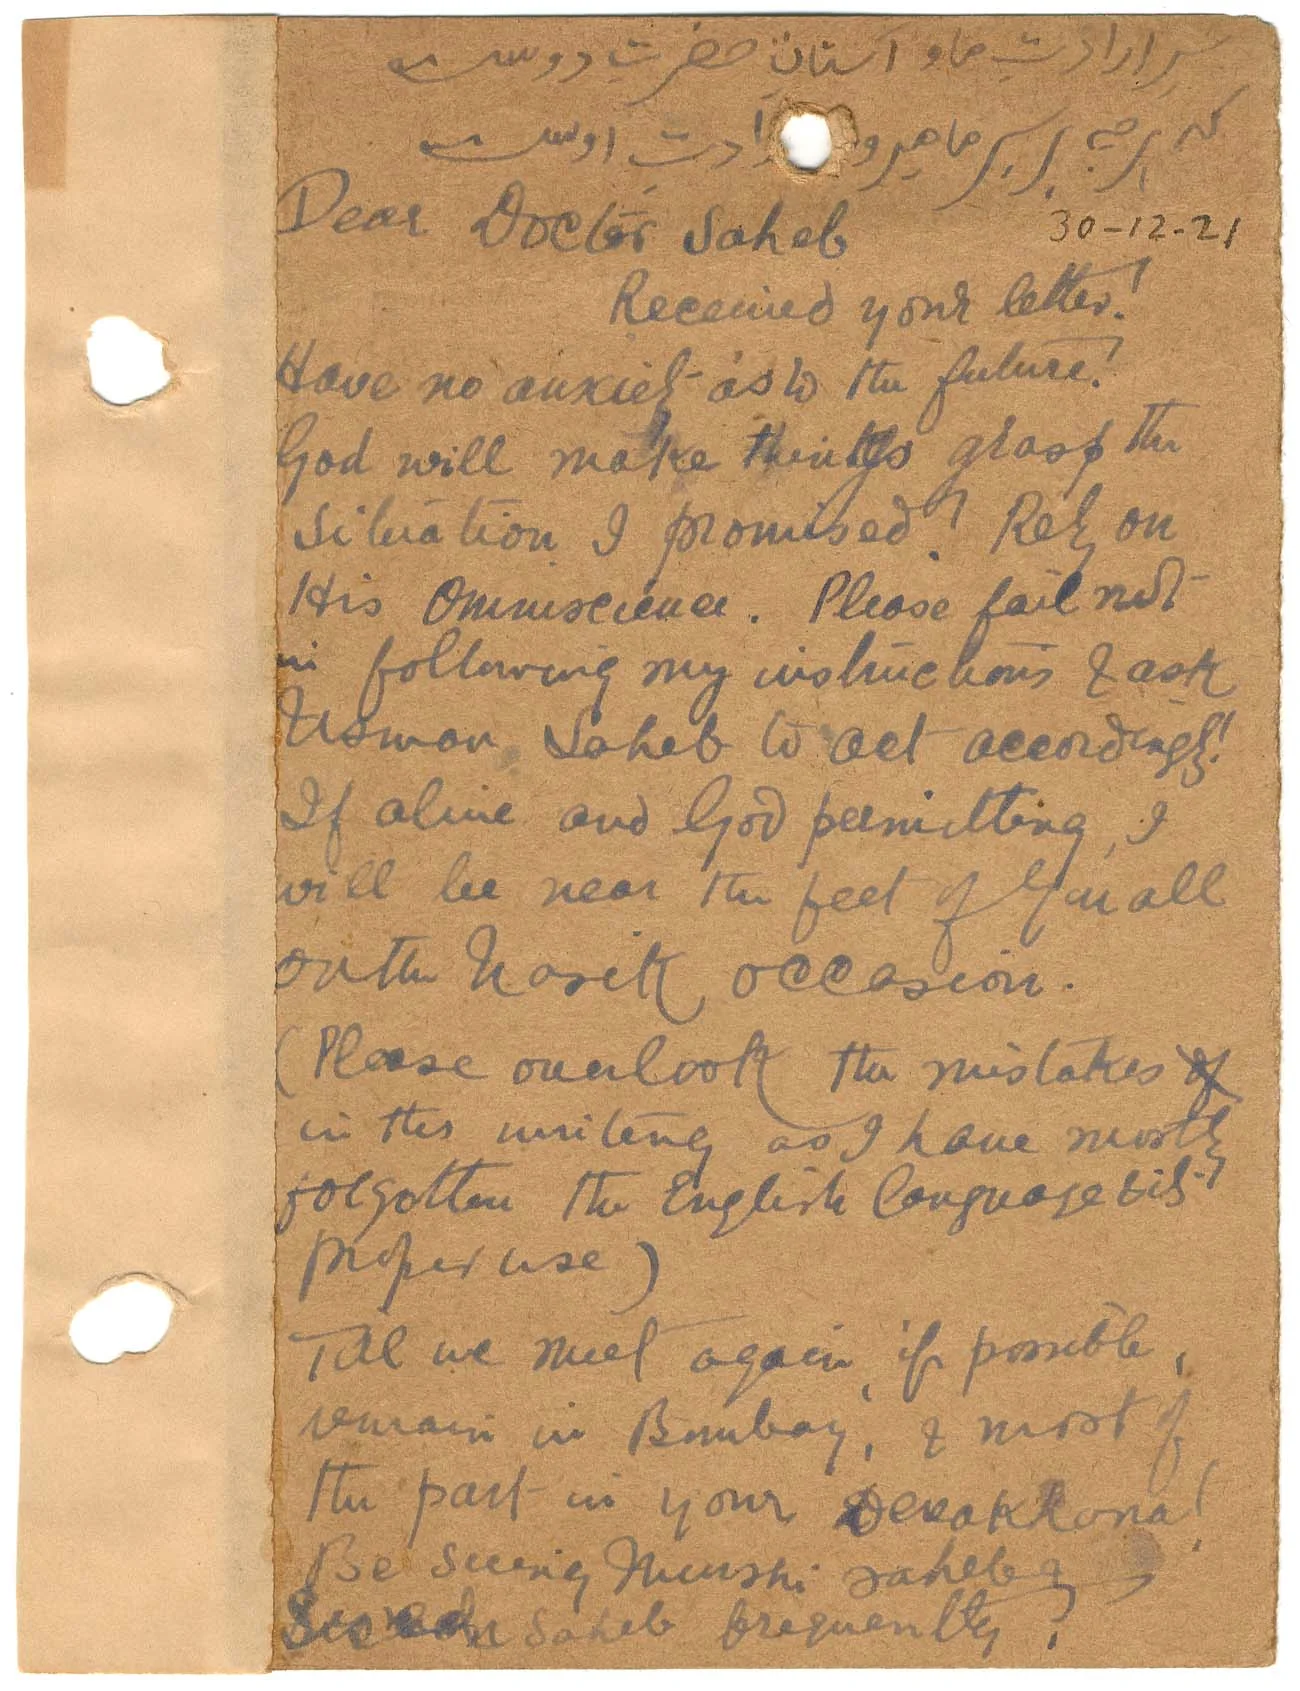 سر ارادت ما و آستان حضرت دوست
که هرچه بر سر ما میرود ارادت اوست
Dear Doctor Saheb
30-12-21
Received your letter!
Have no anxiety as to the future!
God will make things grasp the
situation I promised! Rely on
His Omniscience. Please fail not
in following my instructions & ask
Usman Saheb to act accordingly!
If alive and God permitting, I
will be near the feet of You all
on the Nasik occasion.
(Please overlook the mistakes of
in this writing as I have mostly
forgotten the English language & its
proper use)
Till we meet again, if possible,
remain in Bombay, & most of
the part in your Davakhana!
Be seeing Munshi saheb &
Saheb frequently!